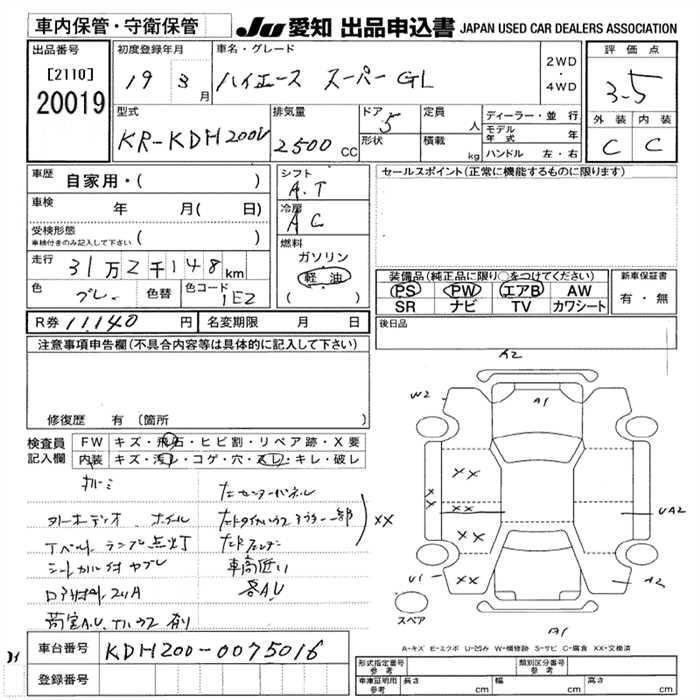 車内保管・守衛保管
JU 愛知 出品申込書 JAPAN USED CAR DEALERS ASSOCIATION
出品番号
[2110]
20019
初度登録年月
19 3月
車名・グレード
ハイエース スーパーGL
2WD
・
4WD
評価点
3.5
外装 内装
C C
型式
KR-KDH200V
排気量
2500 CC
ドア 5
形状
定員 人
積載 kg
ディーラー・並行
モデル年式 年
ハンドル 左・右
車歴 自家用・( )
車検 年 月( 日)
受検形態
車検付きのみ記入して下さい ( )
走行 31万2千148km
色 グレー 色替 色コード 1E2
シフト
A.T
冷房
AC
燃料
ガソリン
軽油
( )
セールスポイント(正常に機能するものに限ります)
装備品(純正品に限り○をつけてください)
PS PW エアB AW
SR ナビ TV カワシート
新車保証書
有・無
R券 11,140 円 名変期限 月 日
後日品
注意事項申告欄(不具合内容等は具体的に記入して下さい)
修復歴 有 (箇所 )
検査員
記入欄
FW キズ・飛石・ヒビ割・リペア跡・X要
内装 キズ・汚レ・コゲ・穴・スレ・キレ・破レ
オーディオ ホイル
Tベルト ランプ点灯
車高低い
各AU
XX
A2
A1
W2
XX
XX
XX
XX
XX
UA2
U1
XX
A2
A1
スペア
A-キズ E-エクボ U-凹み W-補修跡 S-サビ C-腐食 XX-交換済
車台番号 KDH200-0075016
登録番号
形式指定番号 参考
類別区分番号 参考
車庫証明用 参考 長さ cm 幅 cm 高さ cm